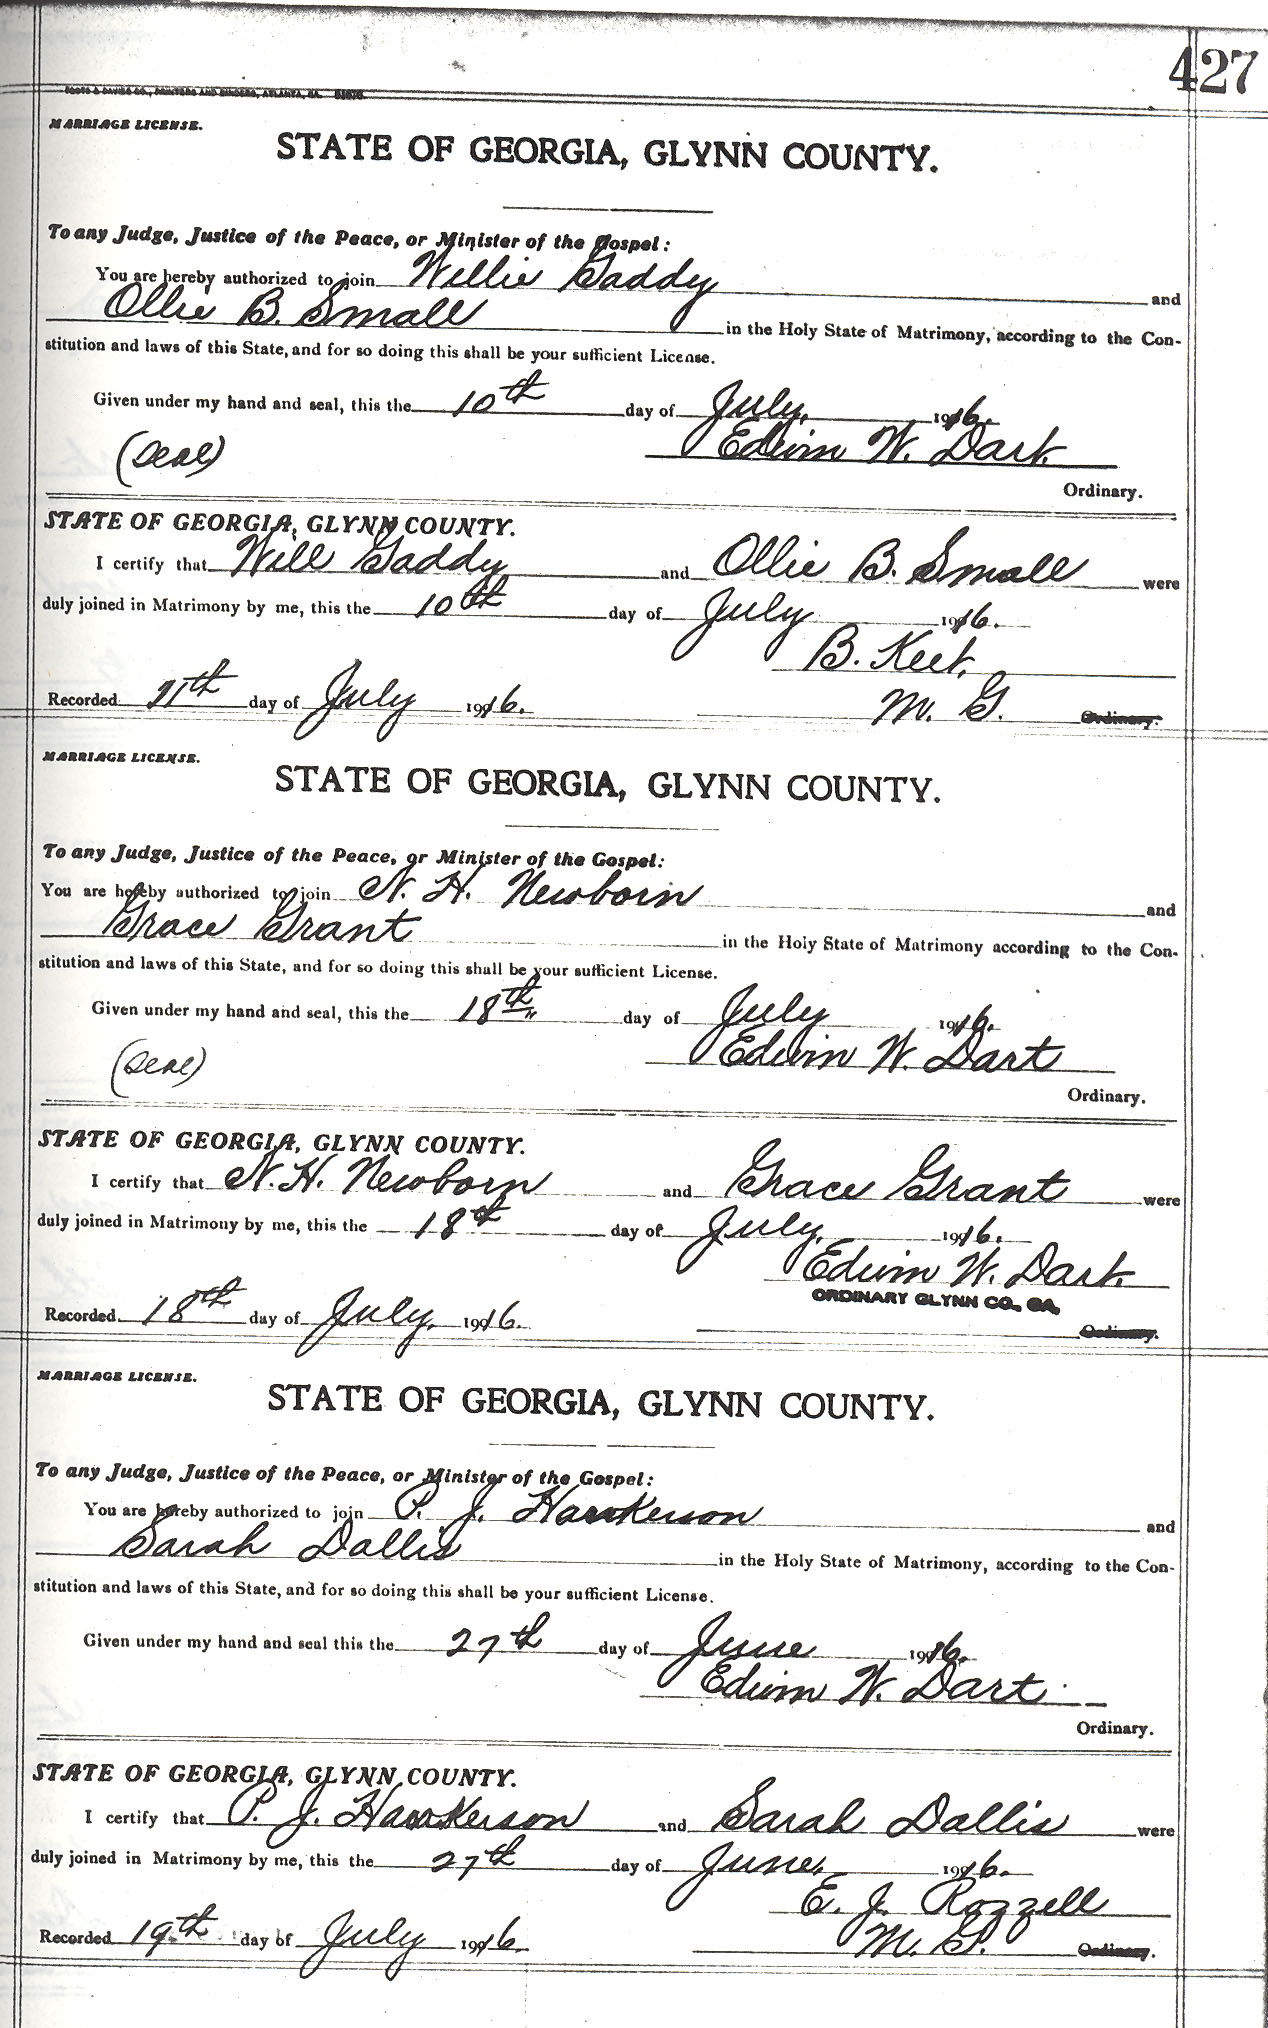 427
FOOTE & DAVIES CO., PRINTERS AND BINDERS, ATLANTA, GA.
MARRIAGE LICENSE.
STATE OF GEORGIA, GLYNN COUNTY.
To any Judge, Justice of the Peace, or Minister of the Gospel:
You are hereby authorized to join Willie Gaddy and
Ollie B. Small in the Holy State of Matrimony, according to the Con-
stitution and laws of this State, and for so doing this shall be your sufficient License.
Given under my hand and seal, this the 10th day of July, 1916.
(Seal) Edwin W. Dart.
Ordinary.
STATE OF GEORGIA, GLYNN COUNTY.
I certify that Will Gaddy and Ollie B. Small were
duly joined in Matrimony by me, this the 10th day of July 1916.
B. Keet,
Recorded 11th day of July 1916. M. G. Ordinary.
MARRIAGE LICENSE.
STATE OF GEORGIA, GLYNN COUNTY.
To any Judge, Justice of the Peace, or Minister of the Gospel:
You are hereby authorized to join N. H. Newborn and
Grace Grant in the Holy State of Matrimony according to the Con-
stitution and laws of this State, and for so doing this shall be your sufficient License.
Given under my hand and seal, this the 18th day of July 1916.
(Seal) Edwin W. Dart
Ordinary.
STATE OF GEORGIA, GLYNN COUNTY.
I certify that N. H. Newborn and Grace Grant were
duly joined in Matrimony by me, this the 18th day of July, 1916.
Edwin W. Dart.
ORDINARY GLYNN CO., GA.
Recorded 18th day of July, 1916. Ordinary.
MARRIAGE LICENSE.
STATE OF GEORGIA, GLYNN COUNTY.
To any Judge, Justice of the Peace, or Minister of the Gospel:
You are hereby authorized to join P. J. Hawkerson and
Sarah Dallis in the Holy State of Matrimony, according to the Con-
stitution and laws of this State, and for so doing this shall be your sufficient License.
Given under my hand and seal this the 27th day of June 1916.
Edwin W. Dart.
Ordinary.
STATE OF GEORGIA, GLYNN COUNTY.
I certify that P. J. Hawkerson and Sarah Dallis were
duly joined in Matrimony by me, this the 27th day of June, 1916.
E. J. Rozzell
Recorded 19th day of July 1916. M. G. Ordinary.